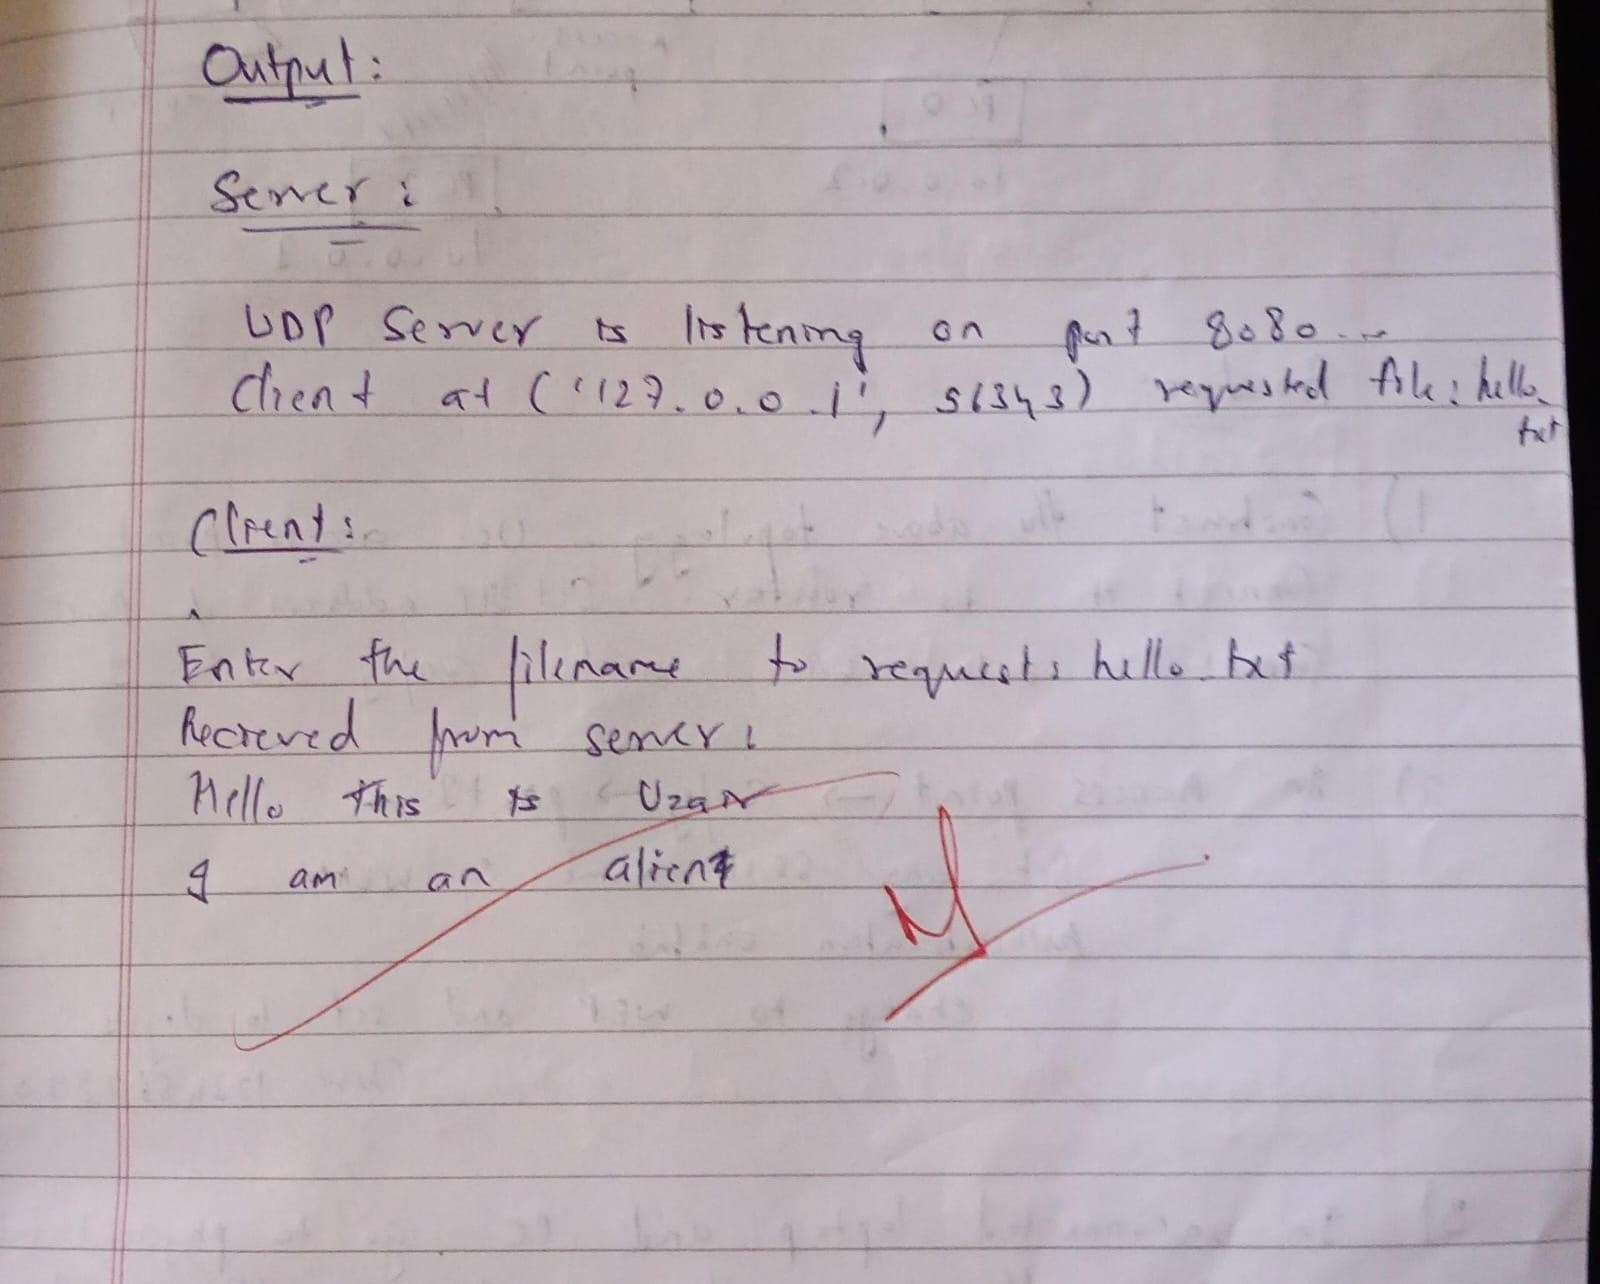 Output:
Server:
UDP Server is listening on port 8080...
Client at ('127.0.0.1', 56343) requested file: hello.
txt
Client:
Enter the filename to request: hello.txt
Recieved from server:
Hello this is Uzair
I am an alient